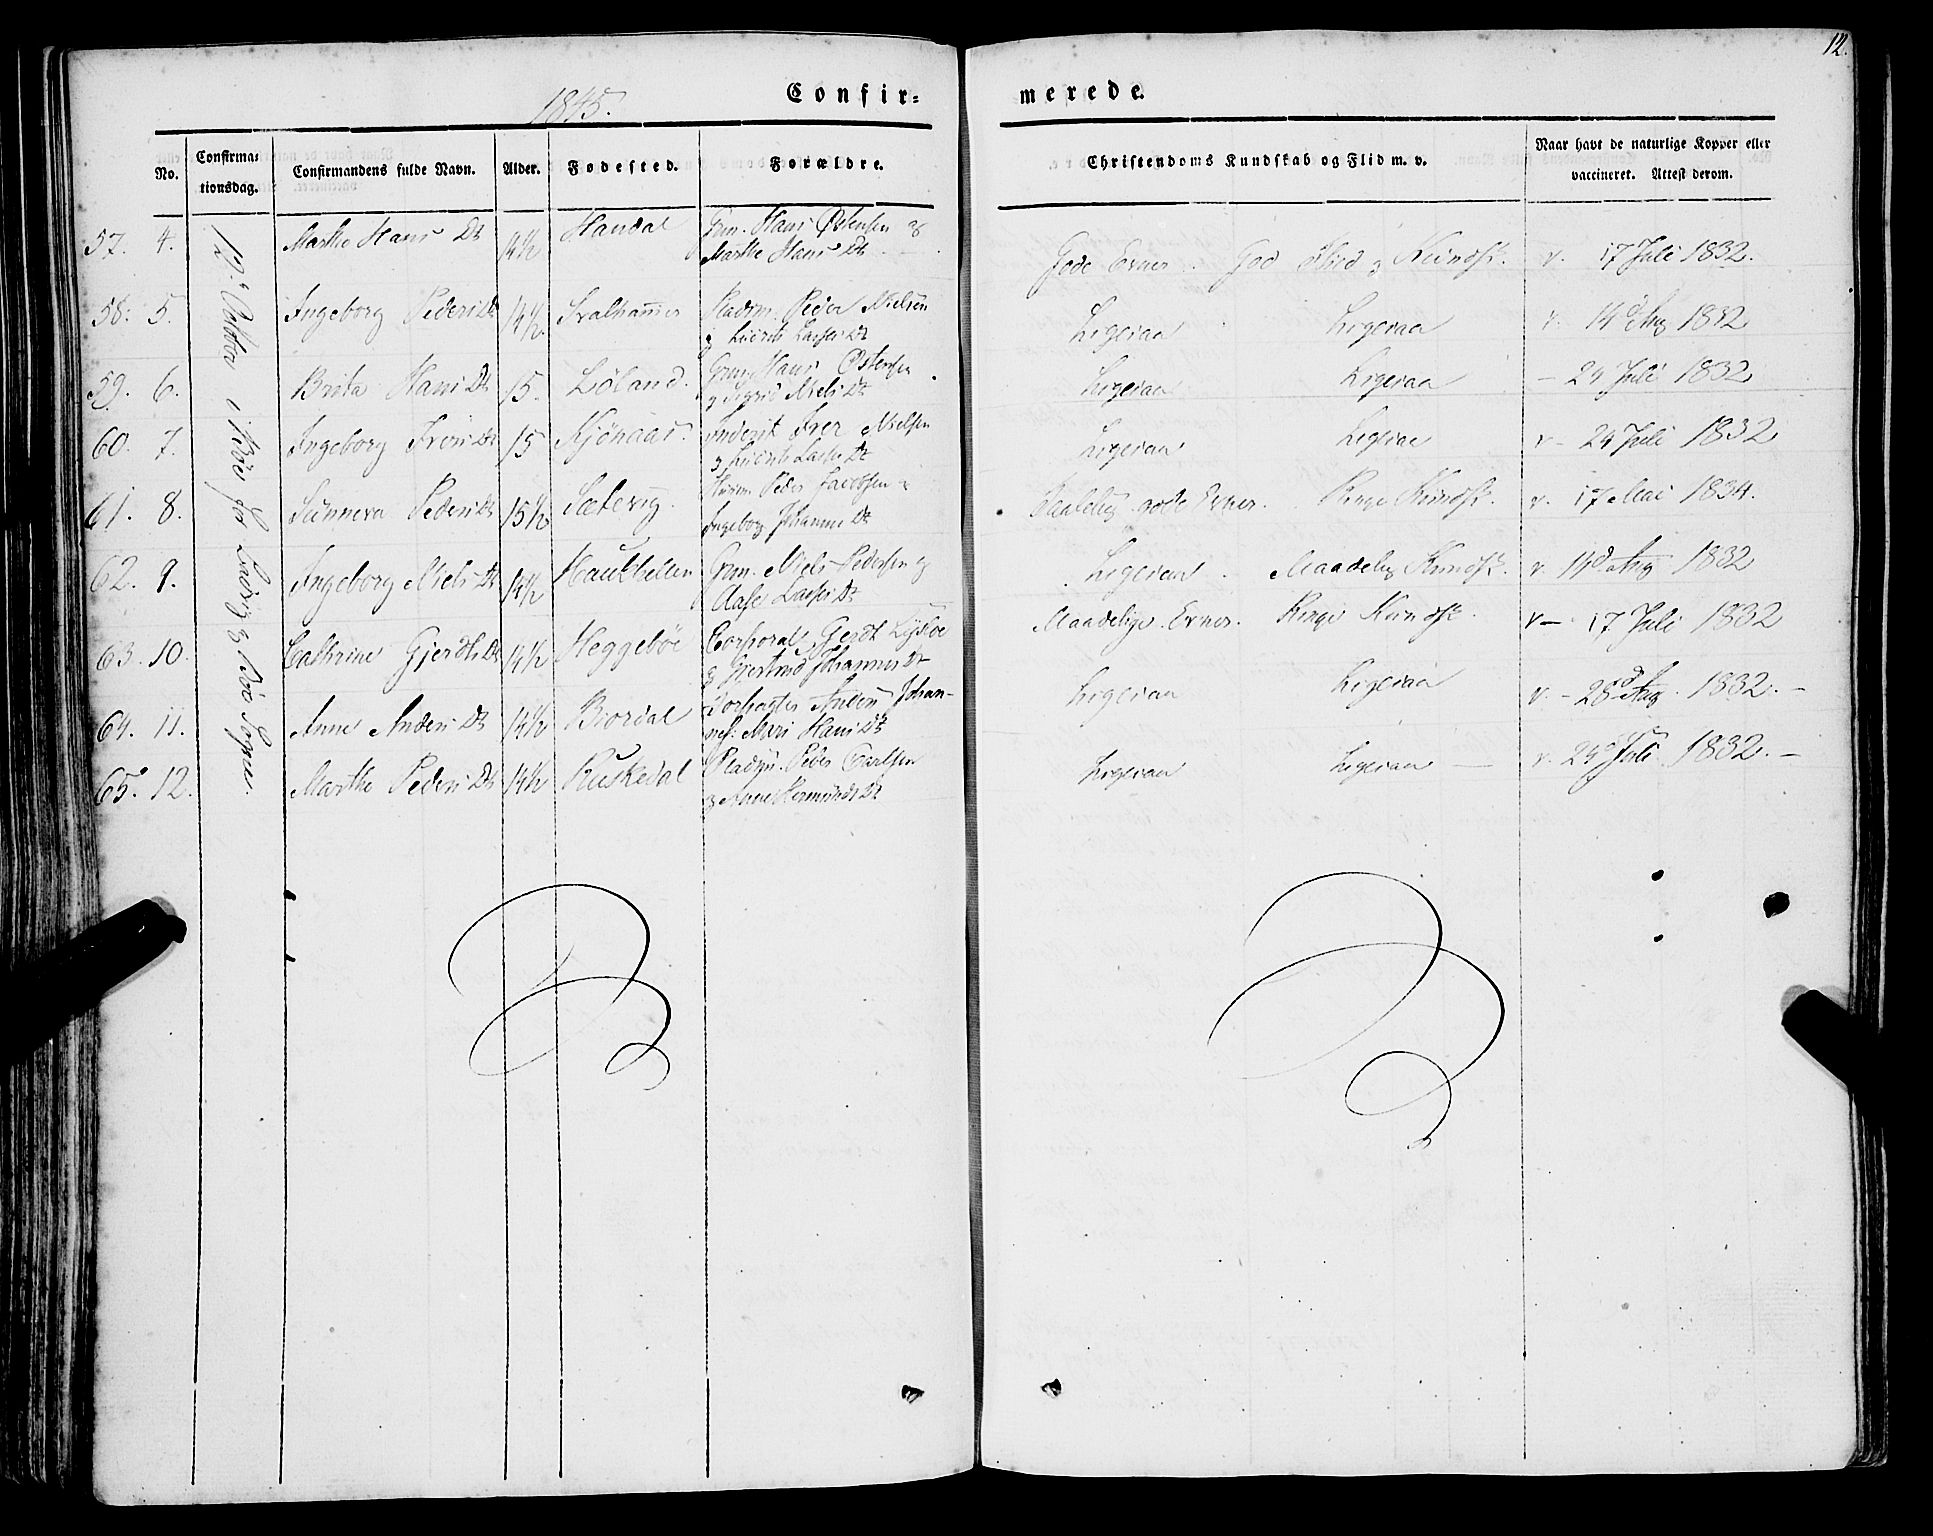 12.
1845.
Confir=
merede.
No.
Confirma=
tionsdag.
Confirmandens fulde Navn.
Alder.
Fødested.
Forældre.
Christendoms Kundskab og Flid m. v.
Naar havt de naturlige Kopper eller
vaccineret. Attest derom.
12. i for og Sogne.
57. 4. Marthe Hans Dt 14½ Handal Gm. Hans Østensen og
Marthe Hans Dt
Gode Evner. God Flid og Kundsk. v. 17 Juli 1832.
58. 5. Ingeborg Peders Dt 14½ Svalhammer Pladsm. Peder Nielsen
Lasses Dt
Ligesaa Ligesaa v. 14 Aug 1832
59. 6. Brita Hans Dt 15. Løland. Gm. Hans Østensen
og Sigrid Niels Dt
Ligesaa Ligesaa - 24 Juli 1832
60. 7. Ingeborg Ivers Dt 15 Iver Nielsen
Lasses Dt
Ligesaa Ligesaa v- 24 Juli 1832
61. 8. Sünneva Peders Dt 15½ Sætevig. Huusm. Peder Jacobsen
Ingeborg Johannes Dt
gode Evner. Ringe Kundsk. v. 17 Mai 1834.
62. 9. Ingeborg Niels Dt 14½ Haukhellen Gm. Niels Pedersen og
Aase Lasses Dt
Ligesaa. Maadelig Kundsk. v. 14 Aug 1832
63. 10. Cathrine Gjerdts Dt 14½ Heggebøe Corporal Gerdt
og Gjertrud Johannes Dt
Maadelige Evner. Ringe Kundsk. v- 17 Juli 1832
64. 11. Anne Anders Dt 14½ Bordal Anders Johan-
nes. Mari Hans Dt
Ligesaa Ligesaa v. - 28 Aug. 1832. -
65. 12. Marthe Peders Dt 14½ Ruskedal Pladsm. Peder Carlsen
og Anne Hermunds Dt
Ligesaa Ligesaa - v. 24 Juli 1832. -